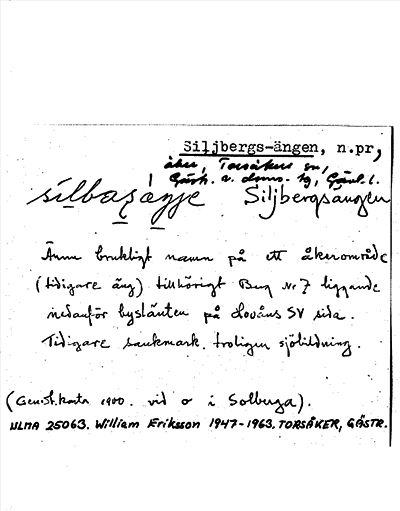 Siljbergs-ängen, n.pr,
åker, Torsåkers sn,
Gästr. ö. doms. hg, Gävl. l.
silbaʒáŋŋe Siljbergsängen
Ännu brukligt namn på ett åkerområde
(tidigare äng) tillhörigt Berg Nr 7 liggande
nedanför byslänten på Hoåns SV sida.
Tidigare sankmark. troligen sjöbildning.
(Gen.st.karta 1900. vid o i Solberga).
ULMA 25063. William Eriksson 1947-1963. TORSÅKER, GÄSTR.